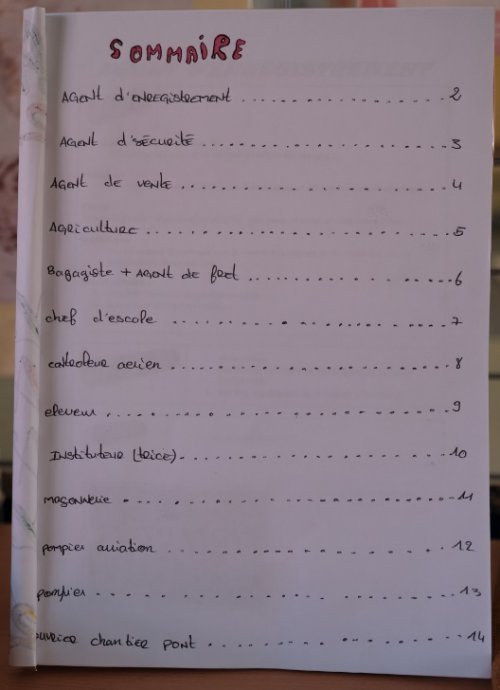 SOMMAIRE
AGENT d'ENREGISTREMENT .......................... 2
AGENT d'SÉCURITÉ .......................... 3
AGENT DE VENTE .......................... 4
AGRICULTURE .......................... 5
Bagagiste + AGENT DE fret .......................... 6
chef d'escale .......................... 7
controleur aerien .......................... 8
eleveur .......................... 9
INSTITUTEUR (trice) .......................... 10
MAÇONNERIE .......................... 11
pompier aviation .......................... 12
pompier .......................... 13
ouvrier chantier PONT .......................... 14